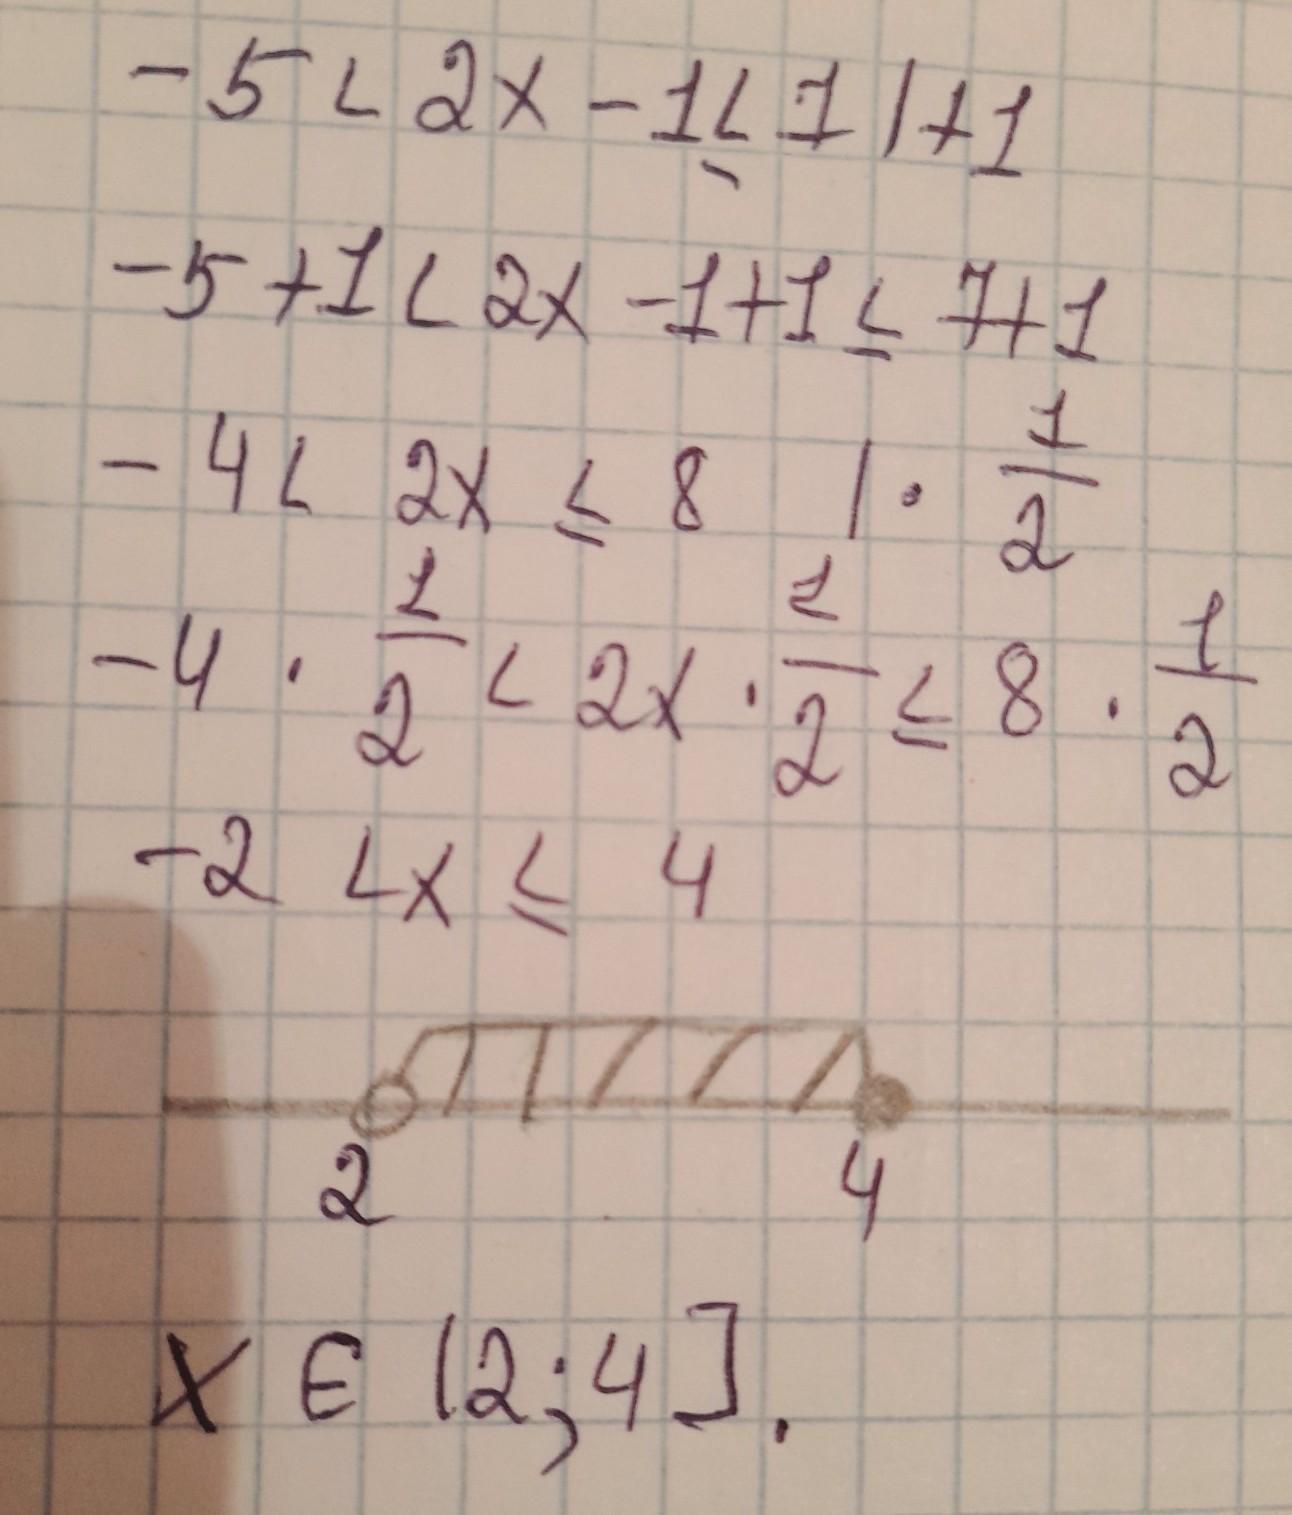 -5 < 2x - 1 ≤ 7 | +1
-5 + 1 < 2x - 1 + 1 ≤ 7 + 1
-4 < 2x ≤ 8 | · 1/2
-4 · 1/2 < 2x · 1/2 ≤ 8 · 1/2
-2 < x ≤ 4
2 4
x ∈ (2; 4].